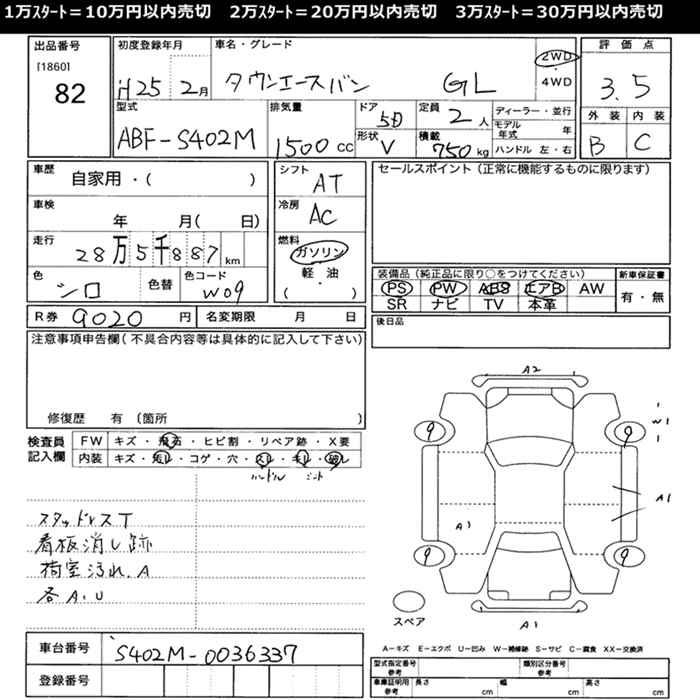 1万スタート＝10万円以内売切　2万スタート＝20万円以内売切　3万スタート＝30万円以内売切
出品番号 初度登録年月 車名・グレード 評価点
[1860] 82 H25年 2月 タウンエースバン GL 2WD・4WD 3.5
型式 排気量 ドア 定員 ディーラー・並行 外装 内装
ABF-S402M 1500cc 5D 2人 モデル年式 年 B C
形状 V 積載 750kg ハンドル 左・右
車歴 自家用・( ) シフト AT セールスポイント（正常に機能するものに限ります）
車検 年 月( 日) 冷房 AC
走行 28万5千887km 燃料 ガソリン
軽・油
( )
色 シロ 色替 色コード W09
装備品（純正品に限り○をつけてください） 新車保証書
PS PW ABS エアB AW 有・無
SR ナビ TV 本革
R券 9020円 名変期限 月 日 後日品
注意事項申告欄（不具合内容等は具体的に記入して下さい）
修復歴 有（箇所 ）
検査員記入欄 FW キズ・飛石・ヒビ割・リペア跡・X要
内装 キズ・汚レ・コゲ・穴・スレ・キレ・破レ
ハンドル シート
スタッドレスT
看板消し跡
荷室汚れ.A
各A.U
A2
9 9 W1
A1 A1
9 9
スペア A1
車台番号 S402M-0036337
登録番号
A－キズ E－エクボ U－凹み W－補修跡 S－サビ C－腐食 XX－交換済
型式指定番号 参考 類別区分番号 参考
車庫証明用 参考 長さ cm 幅 cm 高さ cm